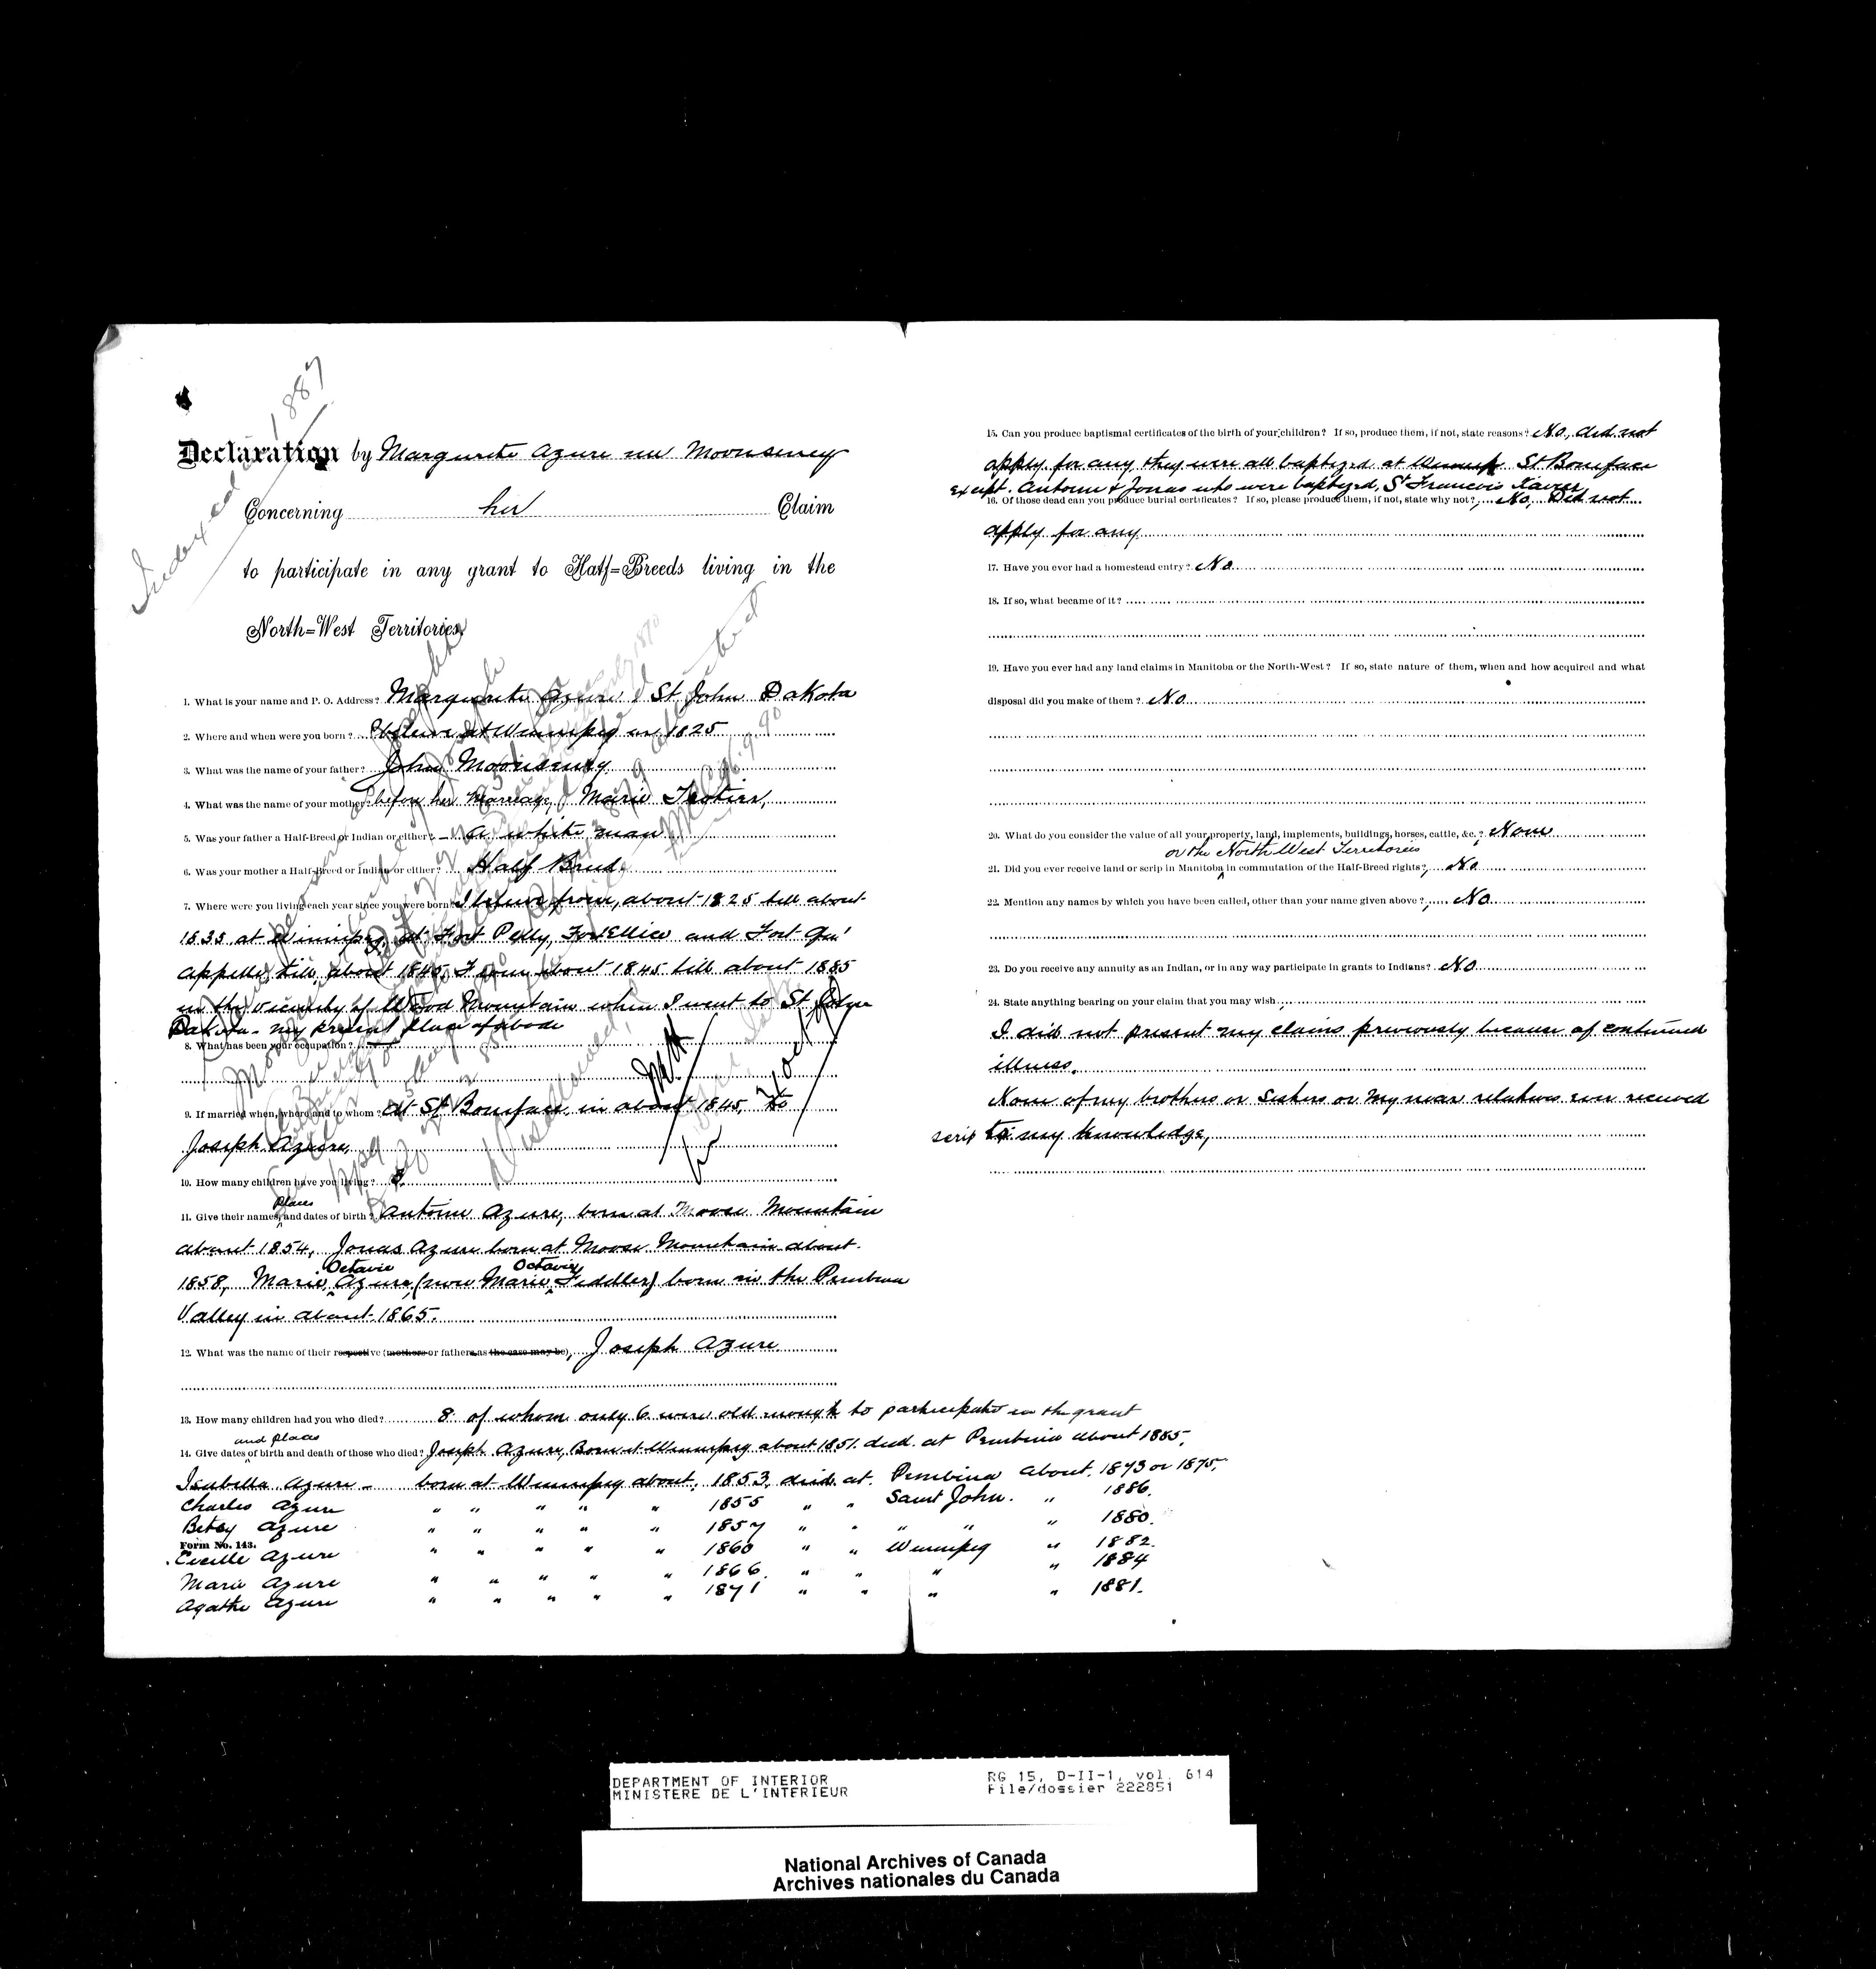 Indexed 1887
Declaration by Marguerite Azure nee Moonseney
Concerning her Claim
to participate in any grant to Half-Breeds living in the
North-West Territories.
1. What is your name and P. O. Address? Marguerite Azure, St John Dakota
2. Where and when were you born? I believe at Winnipeg in 1825
3. What was the name of your father? John Mooniseney
4. What was the name of your mother? before her Marriage, Marie Trotier,
5. Was your father a Half-Breed or Indian or either? - a white man
6. Was your mother a Half-Breed or Indian or either? Half Breed.
7. Where were you living each year since you were born? I believe from, about 1825 till about
1835 at Winnipeg, at Fort Pelly, Fort Ellice and Fort Qu'
appelle, till about 1845, From about 1845 till about 1885
in the vicinity of Wood Mountain when I went to St John
Dakota - my present place of abode
8. What has been your occupation?
9. If married when, where and to whom? At St Boniface, in about 1845, to
Joseph Azure,
10. How many children have you living? 3.
11. Give their names, places and dates of birth? Antoine Azure, born at Moose Mountain
about 1854, Jonas Azure born at Moose Mountain about
1858, Marie Octavie Azure, (now Marie Octavie Fiddler) born in the Pembina
Valley in about 1865.
12. What was the name of their respective (mothers or fathers as the case may be), Joseph Azure
13. How many children had you who died? 8 of whom only 6 were old enough to participate in the grant
14. Give dates and places of birth and death of those who died? Joseph Azure, Born at Winnipeg about 1851. died at Pembina about 1885,
Isabella Azure - born at Winnipeg about, 1853, died at Pembina about. 1873 or 1875,
Charles Azure " " " " " 1855 " " Saint John. " 1886.
Betsy Azure " " " " " 1857 " " " " " 1880.
Form No. 143.
Cecille Azure " " " " " 1860 " " Winnipeg " 1882.
Marie Azure " " " " " 1866. " " " " 1884
Agathe Azure " " " " " 1871 " " " " 1881.
Disallowed
15. Can you produce baptismal certificates of the birth of your children? If so, produce them, if not, state reasons? No, did not
apply for any they were all baptized at St Boniface
except. Antoine & Jonas who were baptized, St Francois Xavier
16. Of those dead can you produce burial certificates? If so, please produce them, if not, state why not? No, Did not
apply for any
17. Have you ever had a homestead entry? No
18. If so, what became of it?
19. Have you ever had any land claims in Manitoba or the North-West? If so, state nature of them, when and how acquired and what
disposal did you make of them? No
20. What do you consider the value of all your property, land, implements, buildings, horses, cattle, &c.? None
or the North West Territories
21. Did you ever receive land or scrip in Manitoba in commutation of the Half-Breed rights? No
22. Mention any names by which you have been called, other than your name given above? No
23. Do you receive any annuity as an Indian, or in any way participate in grants to Indians? No
24. State anything bearing on your claim that you may wish.
I did not present my claims previously because of continued
illness.
None of my brothers or sisters or my near relatives ever received
scrip to my knowledge,
DEPARTMENT OF INTERIOR
MINISTERE DE L'INTERIEUR
RG 15, D-II-1, vol. 614
File/dossier 222851
National Archives of Canada
Archives nationales du Canada